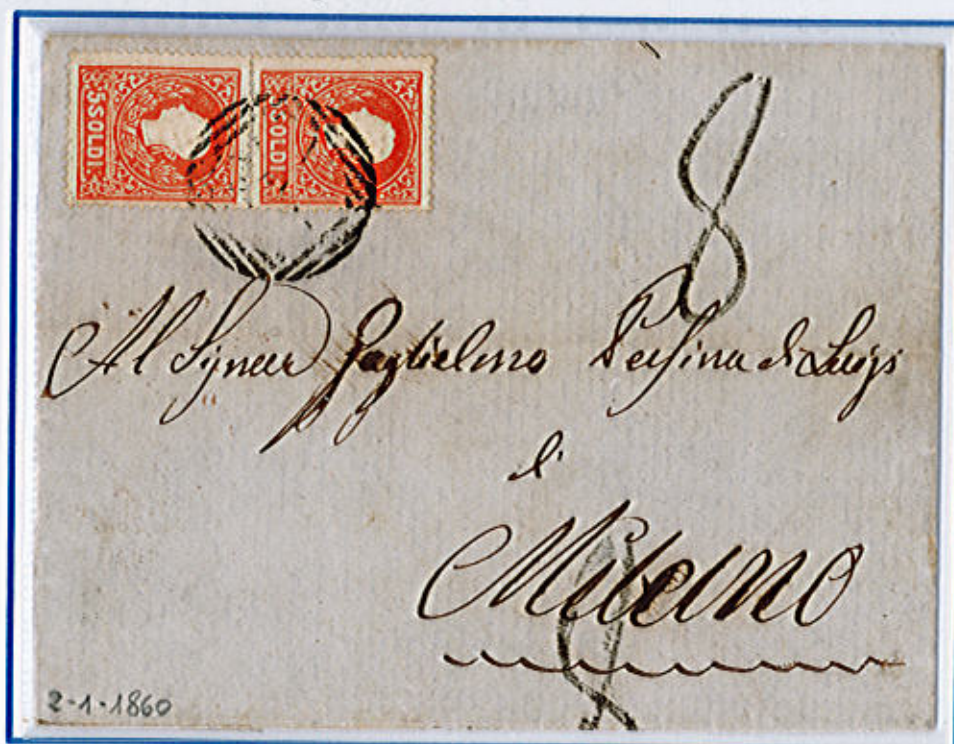 5 SOLDI
SOLDI
8
Al Signor Guglielmo di Luigi
di
Milano
8
2-1-1860